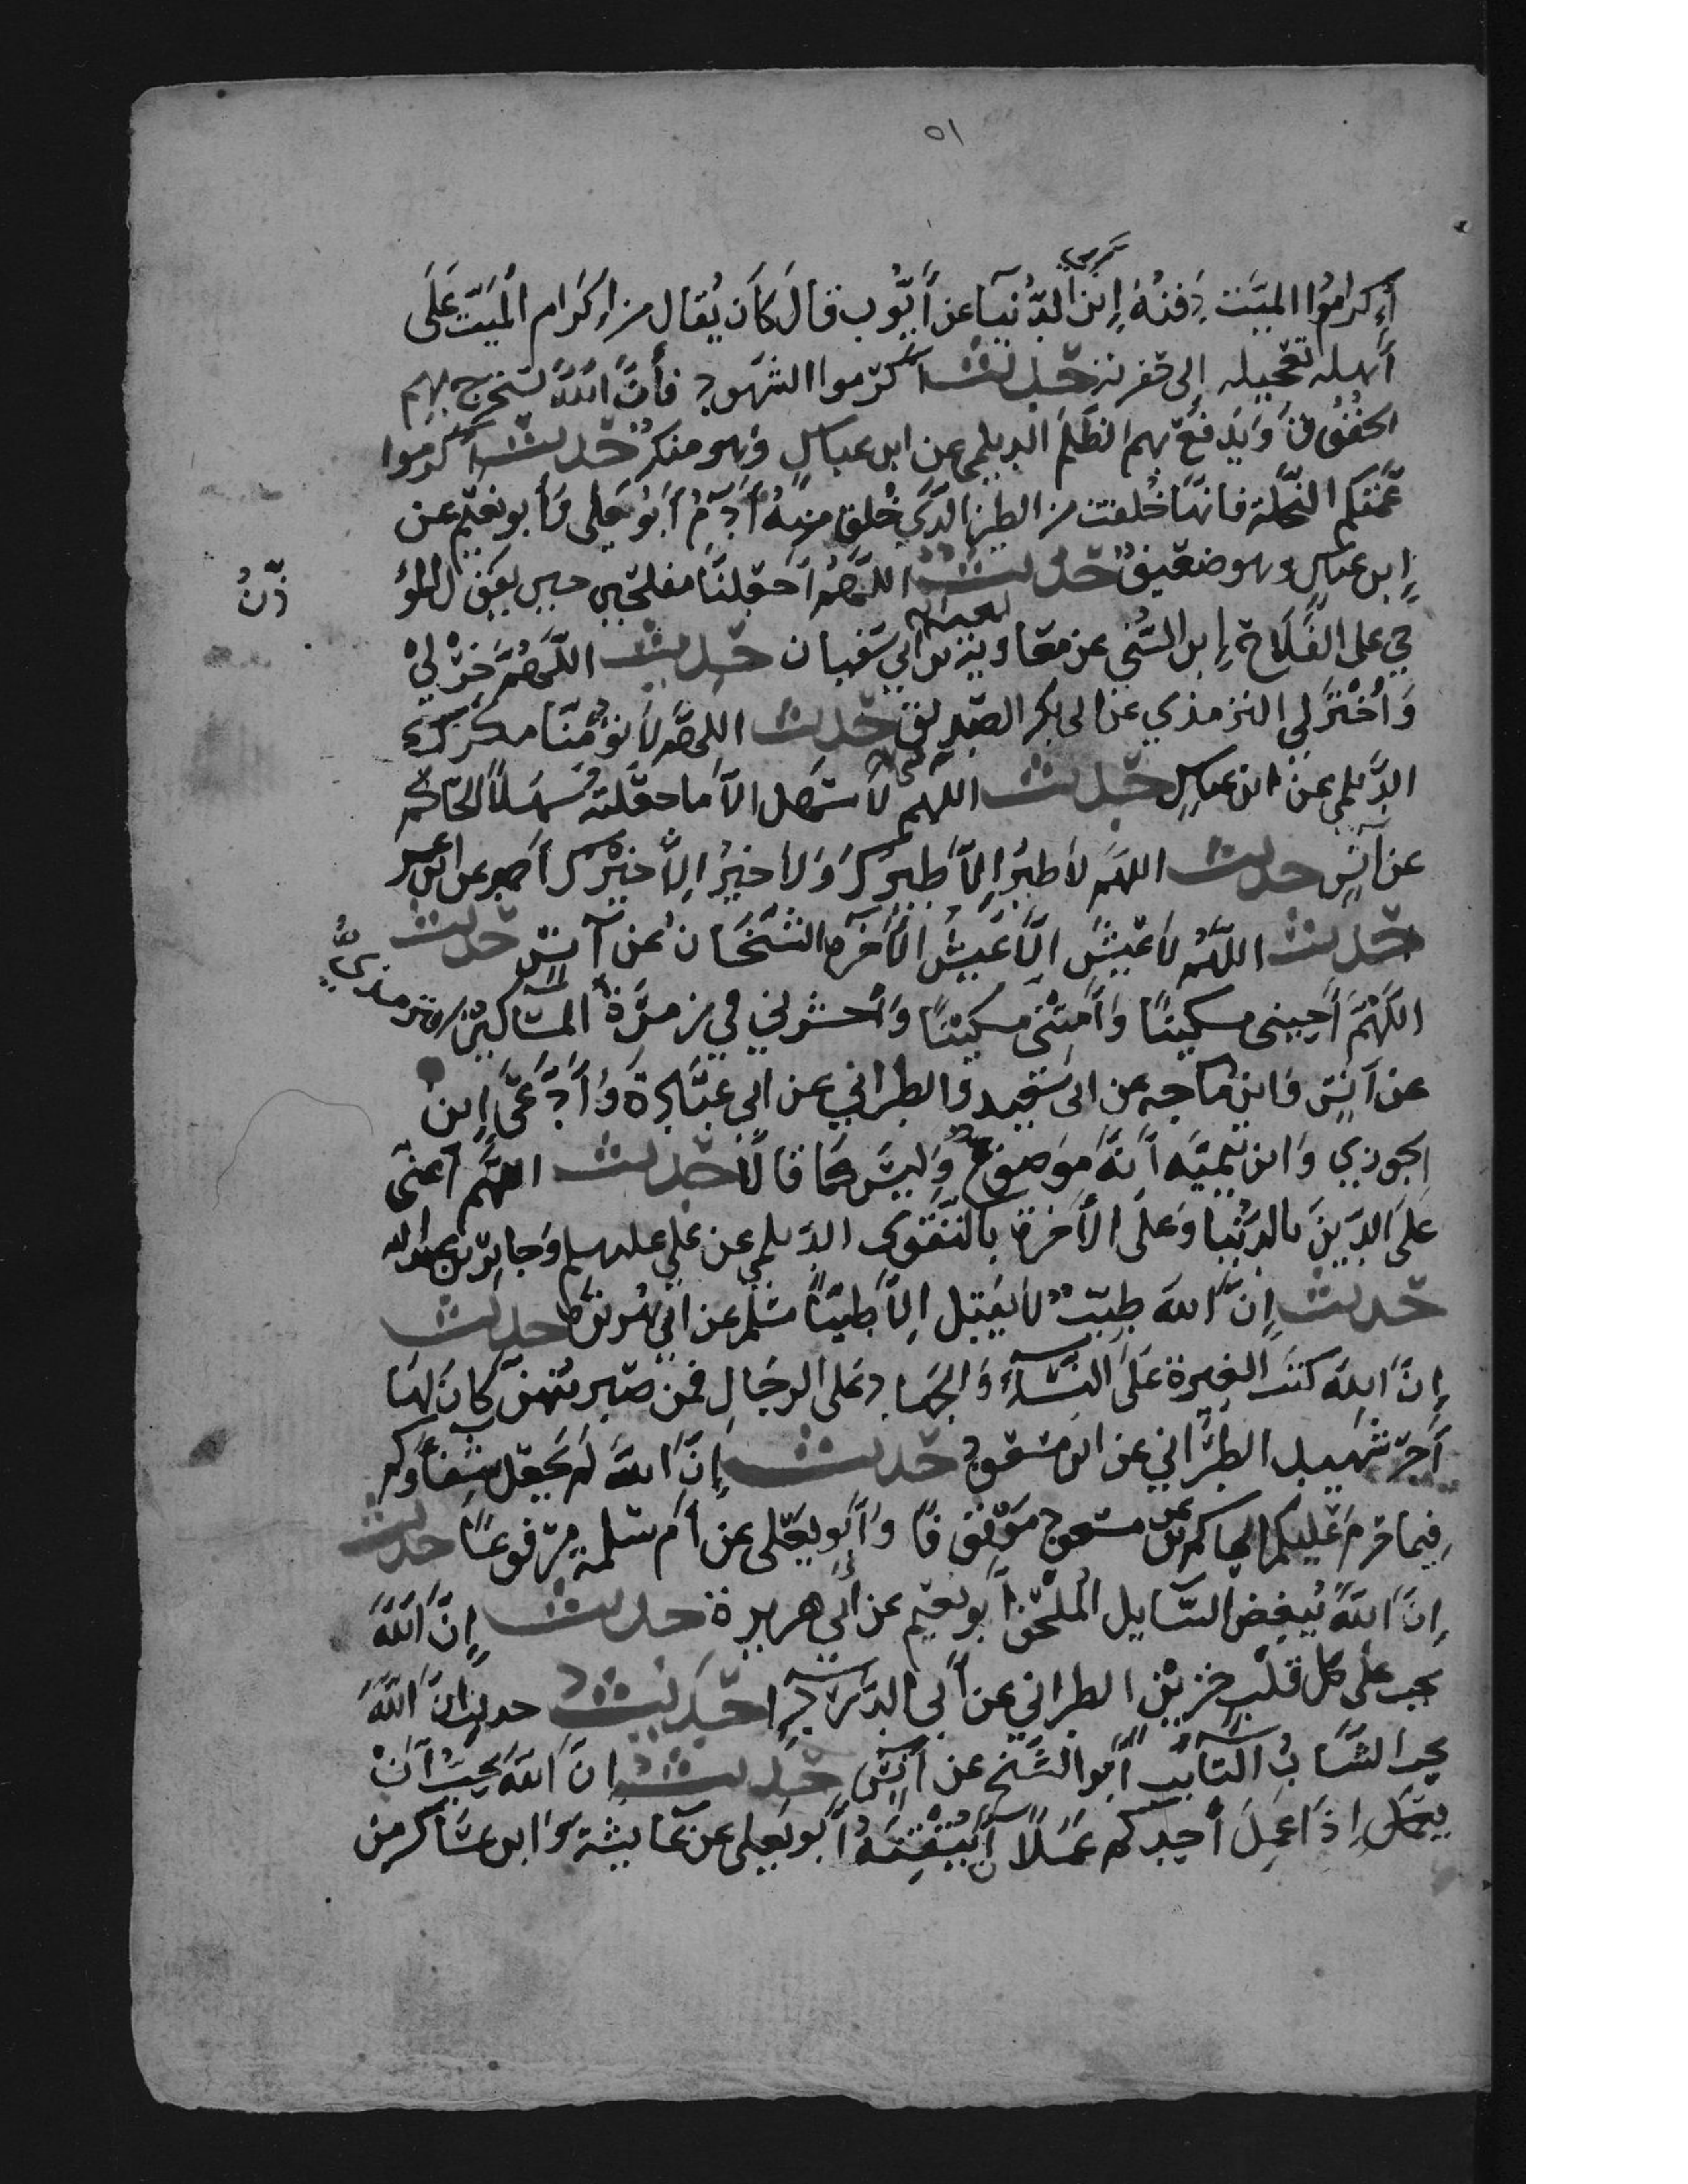 ٥١
أكراموا الميت دفنه إبن أبي الدنيا عن أيوب قال كان يقال من إكرام الميت على
أهله تعجيله إلى حفرته حديث أكرموا الشهود فأن الله يستخرج بهم
الحقوق وايدفع بهم الظلم الديلمي عن ابن عباس وهو منكر حديث أكرموا
عمتكم النخلة فانها خلقت من الطين الذي خلق منه أدم أبو يعلى وأبو نعيم عن
إبن عباس وهو ضعيف حديث اللهم اجعلنا مفلحين حين يقول المؤ ذن
حي على الفلاح إبن السني عن معاوية بن أبي سفيان حديث اللهم خر لي
واختر لي الترمذي عن ابي بكر الصديق حديث اللهم لا تؤمنا مكرك
الديلمي عن ابن عباس حديث اللهم لا سهل الا ما جعلته سهلا الحاكم
عن أنس حديث اللهم لا طير إلا طيرك ولا خير إلا خيرك أحمد عن ابن عمر
حديث اللهم لا عيش الا عيش الأخره الشيخان عن أنس حديث
اللهم أحيني مسكينا وأمتني مسكينا وأحشرني في زمرة المساكين الترمذي
عن أنس وابن ماجه عن ابي سعيد والطبراني عن ابي عبادة وأدعى إبن
الجوزي وابن تيميه أنه موضوع وليس كما قالا حديث اللهم أعني
على الدين بالدنيا وعلى الأخرة بالتقوى الديلمي عن علي عليه السلم وجابر بن عبد الله
حديث إن الله طيب لا يقبل إلا طيبا مسلم عن ابي هريرة حديث
إن الله كتب الغيرة على النسآء والجهاد على الرجال فمن صبر منهن كان لها
أجر شهيد الطبراني عن ابن مسعود حديث إن الله لم يجعل شفاؤكم
فيما حرم عليكم الحاكم عن ابن مسعود موقوفا وأبو يعلى عن أم سلمة مرفوعا حديث
إن الله يبغض السايل الملحف أبو نعيم عن ابي هريرة حديث إن الله
يحب على كل قلب حزين الطبراني عن أبي الدردآء حديث حديث إن الله
يحب الشاب التايب أبو الشيخ عن أنس حديث ان الله يحب أن
يعمل إذا عمل أحدكم عملا أن يتقنه أبو يعلى عن عايشة وابن عساكر من